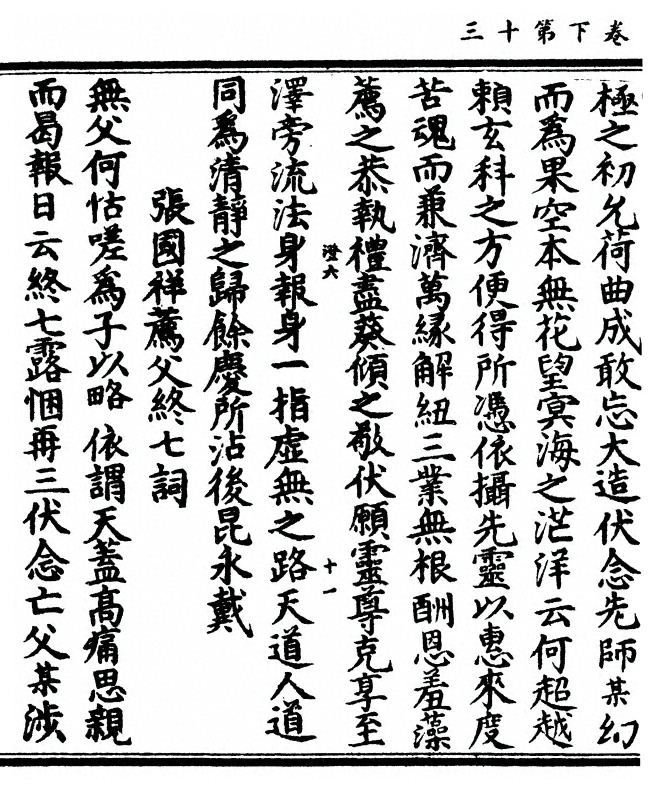 卷下第十三
極之初允荷曲成敢忘大造伏念先師某幻
而為果空本無花望冥海之茫洋云何超越
賴玄科之方便得所憑依攝先靈以惠來度
苦魂而兼濟萬緣解紐三業無根酬恩羞藻
薦之恭執禮盡葵傾之敬伏願靈尊克享至
澄六
十一
澤旁流法身報身一指虛無之路天道人道
同為清靜之歸餘慶所沾後昆永戴
張國祥薦父終七詞
無父何怙嗟為子以略依謂天蓋高痛思親
而曷報日云終七露悃再三伏念亡父某涉